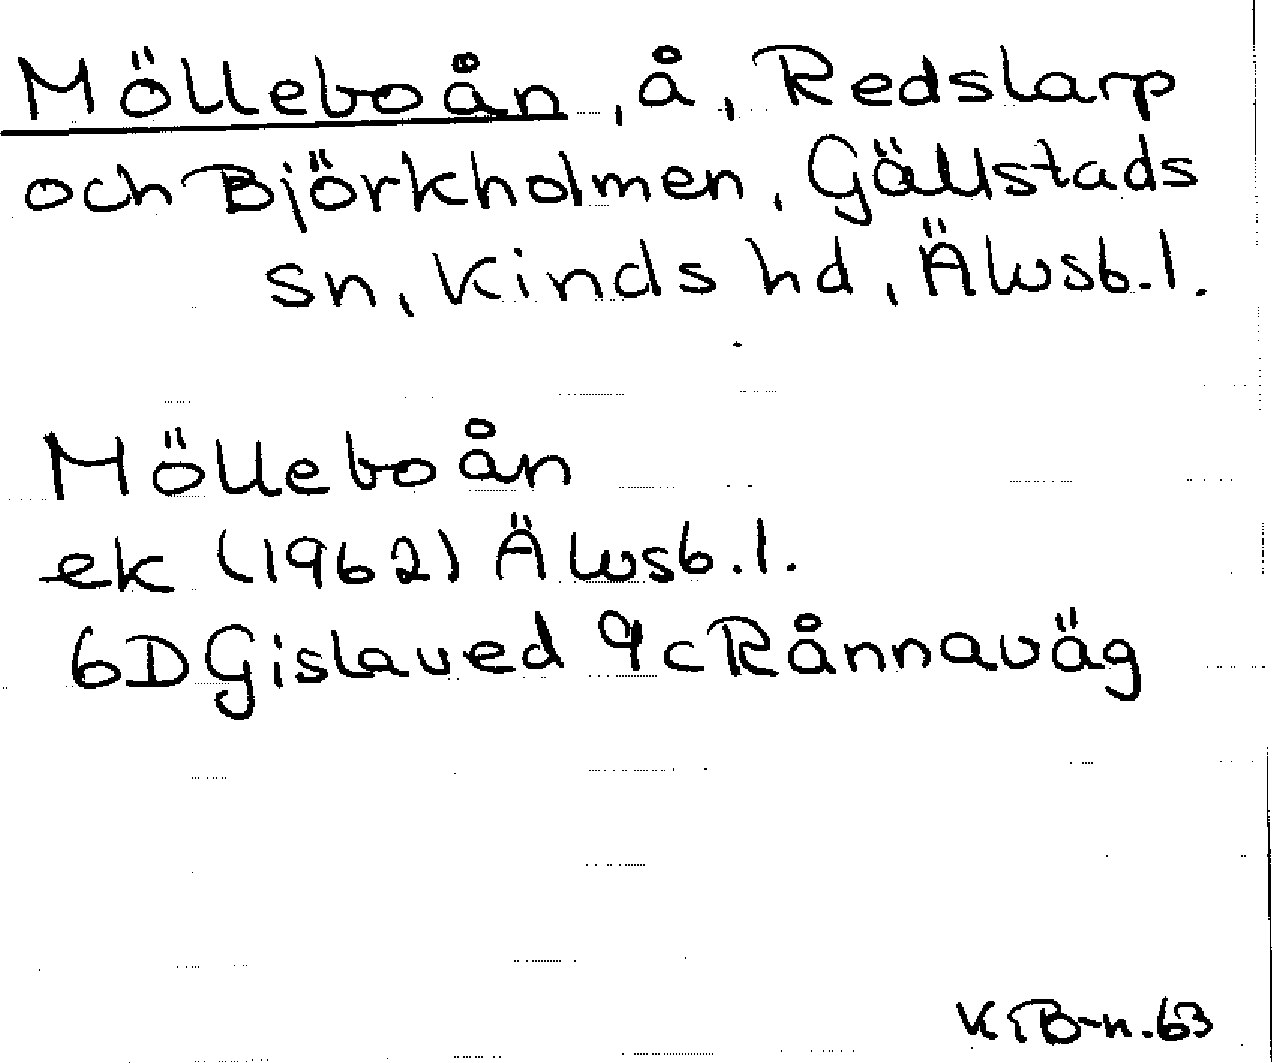 Mölleboån, å, Redslarp
och Björkholmen, Gällstads
sn, Kinds hd, Älvsb.l.
Mölleboån
ek (1962) Älvsb.l.
6D Gislaved 9c Rånnaväg
K i B-n. 63